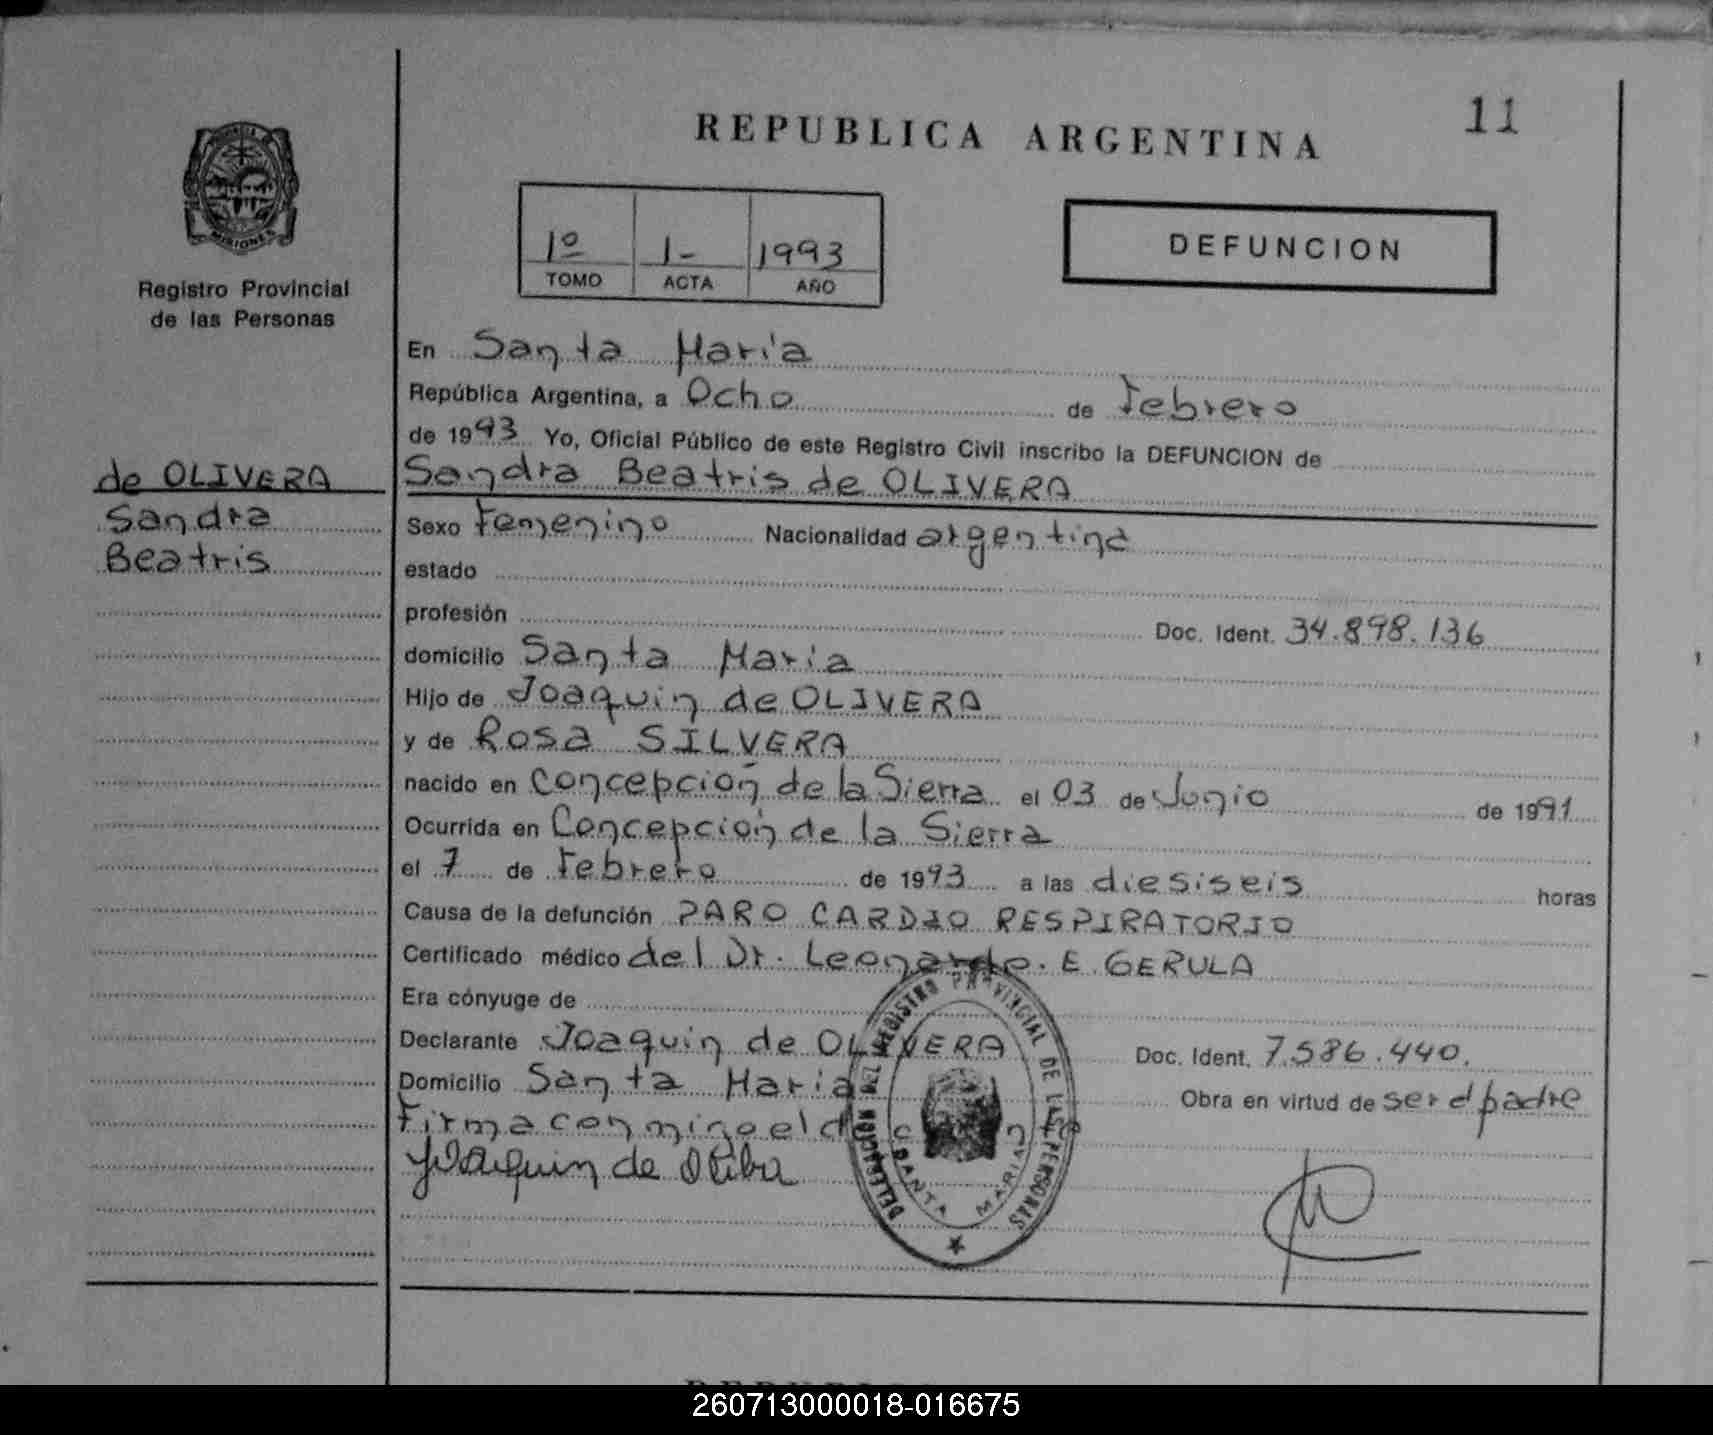 11
REPUBLICA ARGENTINA
MISIONES
Registro Provincial
de las Personas
1º 1- 1993
TOMO ACTA AÑO
DEFUNCION
En Santa María
República Argentina, a Ocho de Febrero
de 1993 Yo, Oficial Público de este Registro Civil inscribo la DEFUNCION de
Sandra Beatris de OLIVERA
de OLIVERA
Sandra
Beatris
Sexo Femenino Nacionalidad argentina
estado
profesión Doc. Ident. 34.898.136
domicilio Santa Maria
Hijo de Joaquin de OLIVERA
y de Rosa SILVERA
nacido en Concepción de la Sierra el 03 de Junio de 1991
Ocurrida en Concepción de la Sierra
el 7 de Febrero de 1993 a las diesiseis horas
Causa de la defunción PARO CARDIO RESPIRATORIO
Certificado médico del Dr. Leonardo. E. GERULA
Era cónyuge de
Declarante Joaquin de OLIVERA Doc. Ident. 7.586.440.
Domicilio Santa Maria Obra en virtud de ser el padre
Firma conmigo el
Joaquin de Oliba
DELEGACION DEL REGISTRO PROVINCIAL DE LAS PERSONAS
SANTA MARIA
260713000018-016675